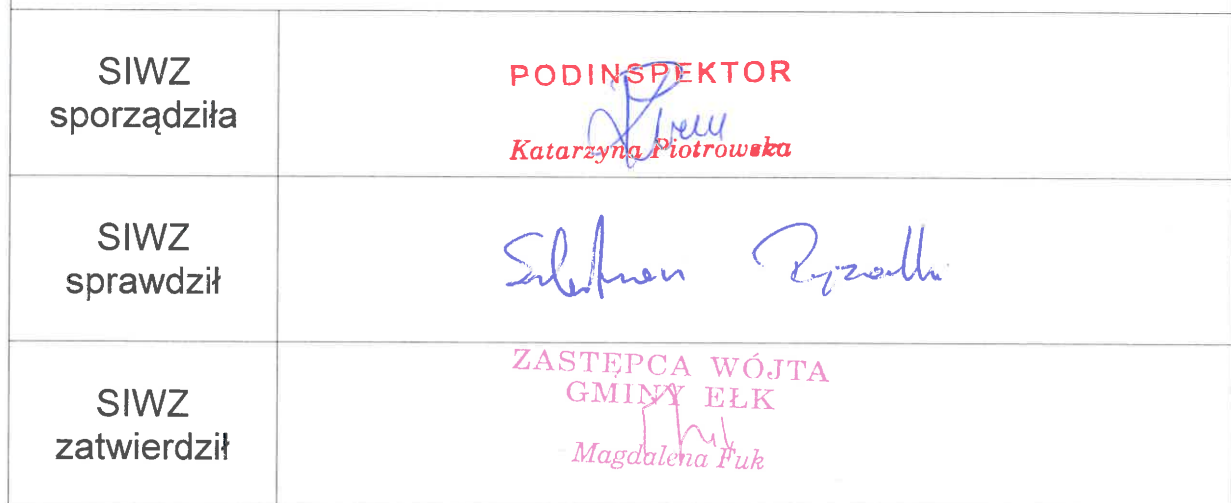 SIWZ
sporządziła
PODINSPEKTOR
Katarzyna Piotrowska
SIWZ
sprawdził
SIWZ
zatwierdził
ZASTĘPCA WÓJTA
GMINY EŁK
Magdalena Fuk